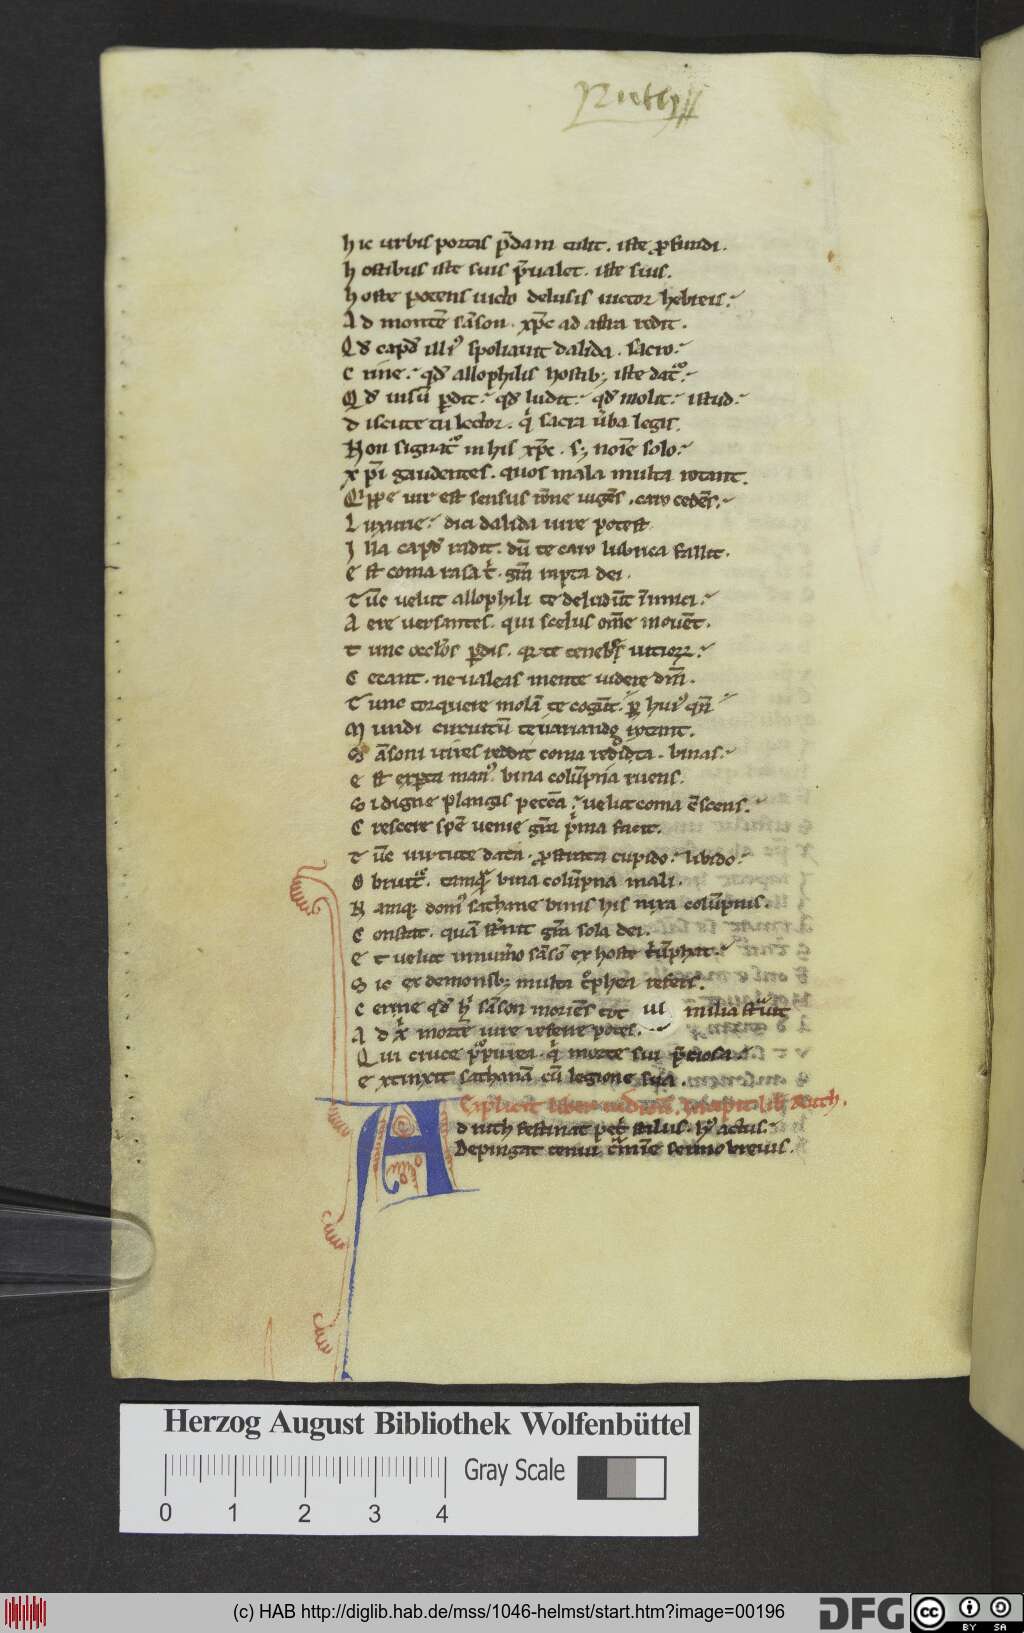 Ruth
hic urbis portas p̄dam tulit. iste ꝓfundi.
hostibus iste suis p̄ualet. iste suis.
hoste potens uicto delusis uictor hebreis:
Ad montē sāson. xp̄c ad astra redit.
Qd̄ capd̄ illiꝰ spoliauit dalida. sacro:
Crine: qd̄ allophilis hostib; iste dat᷑:
Qd̄ uisū ꝑdit: qd̄ ludit: qd̄ molit: istud:
discute tu lector. q̇ sacra ūba legis.
Non signat᷑ in his xp̄c. s; noīe solo:
xp̄i gaudentes. quos mala multa rotant.
uir est sensus rōne uigēs. caro cedēs:
Luxurie: dici dalida iure potest
Illa capd̄ radit. dū te caro lubrica fallit.
Est coma rasa t̉. grā rapta dei.
Tūc uelut allophili te deludūt īimici:
Aere uersantes. qui scelus om̄e mouēt.
tunc occl̓os ꝑdis. q̉ te tenebr̉ uitioꝝ:
Cecant. ne ualeas mente uidere dm̄.
Tunc torquere molā te cogūt. ꝑ huiꝰ qn̄
Mundi circuitū te uariando rotant.
Sāsoni uires reddit coma reddita. binas:
est exꝑta manꝰ. bina colūpna ruens.
Si digne plangis peccā: uelut coma c̄scens:
Crescere spē uenie grā p̉ma facit.
Tūc uirtute data. ꝓstrata cupido: libido:
Obruit᷑. tamqͣ bina colūpna mali.
Namq; domꝰ sathane binis his nixa colūpnis.
Constat. quā st̓nit grā sola dei.
Et uelut inuimo sāso ex hoste t̉ūphat:
Sic ex demonib; multa t̉phea refers.
Cerne qd̄ h̉ sāson moriēs tot ui milia st̓uit
Ad x̉ mortē iure referre potes.
Qui cruce p̉purea. q̉ morte sui p̄ciosa.
extinxit sathanā cū legione sua.
Explicit liber iudicū. Incipit lib̉ Ruth.
Ad ruth festinat pet̉ stilus. hꝰ actus:
Depingat tenui c̓mīe sermo breuis.
Herzog August Bibliothek Wolfenbüttel
Gray Scale
0 1 2 3 4
(c) HAB http://diglib.hab.de/mss/1046-helmst/start.htm?image=00196
DFG
cc BY SA